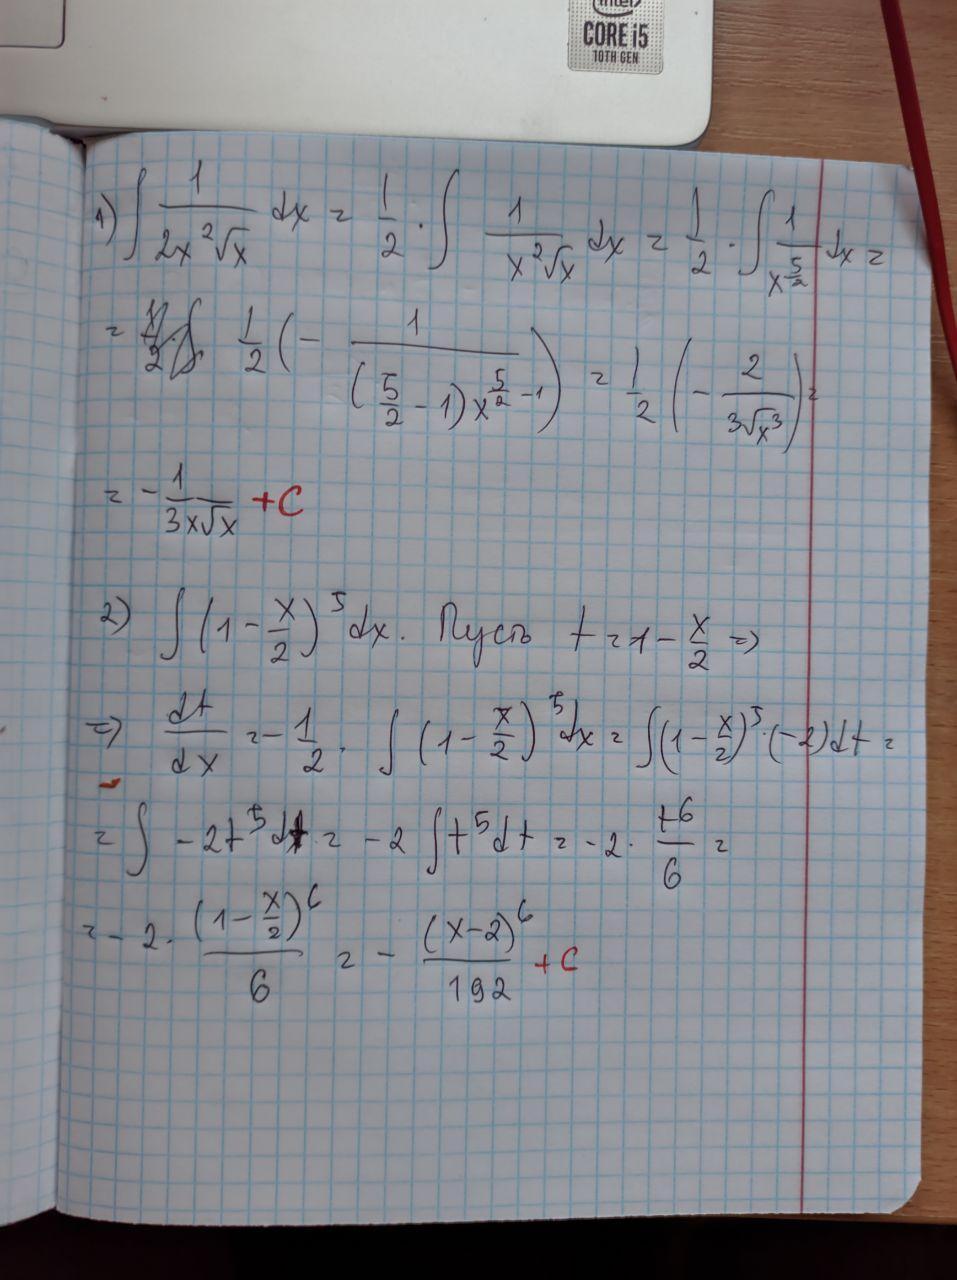 intel
CORE i5
10TH GEN
1) ∫ 1/(2x²√x) dx = 1/2 · ∫ 1/(x²√x) dx = 1/2 · ∫ 1/x^(5/2) dx =
= 1/2 (- 1/((5/2 - 1) x^(5/2 - 1))) = 1/2 (- 2/(3√x³)) =
= - 1/(3x√x) + C
2) ∫ (1 - x/2)⁵ dx. Пусть t = 1 - x/2 =>
=> dt/dx = - 1/2. ∫ (1 - x/2)⁵ dx = ∫ (1 - x/2)⁵ · (-2) dt =
= ∫ - 2t⁵ dt = -2 ∫ t⁵ dt = -2 · t⁶/6 =
= - 2 · (1 - x/2)⁶/6 = - (x-2)⁶/192 + C